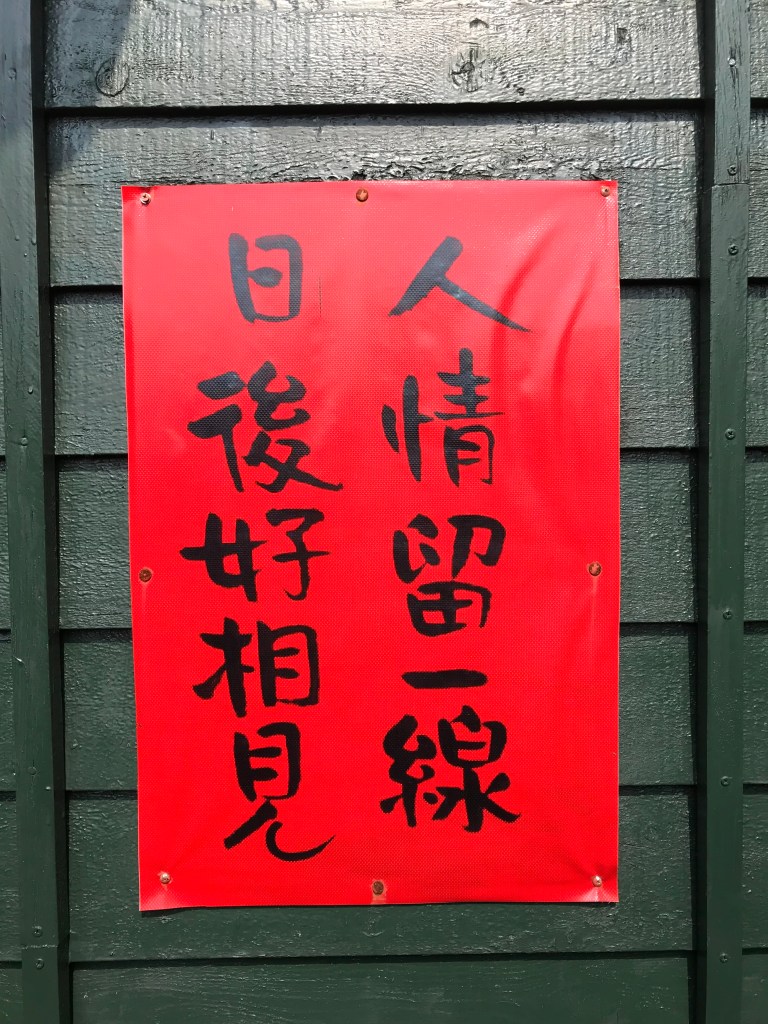 人情留一線
日後好相見